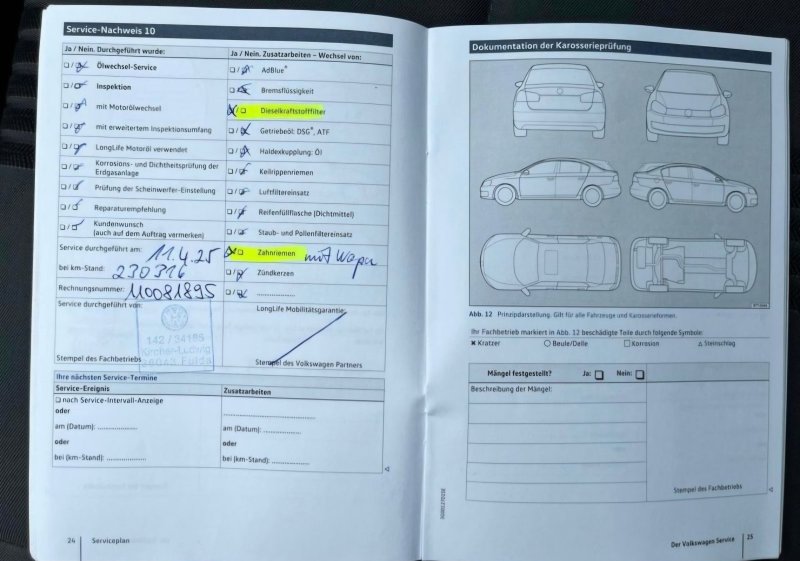 Service-Nachweis 10
Ja / Nein. Durchgeführt wurde:
Ölwechsel-Service
Inspektion
mit Motorölwechsel
mit erweitertem Inspektionsumfang
LongLife Motoröl verwendet
Korrosions- und Dichtheitsprüfung der
Erdgasanlage
Prüfung der Scheinwerfer-Einstellung
Reparaturempfehlung
Kundenwunsch
(auch auf dem Auftrag vermerken)
Service durchgeführt am: 11.4.25
bei km-Stand: 230316
Rechnungsnummer: 110081895
Service durchgeführt von:
142 / 34185
Stempel des Fachbetriebs
Ja / Nein. Zusatzarbeiten – Wechsel von:
AdBlue®
Bremsflüssigkeit
Dieselkraftstofffilter
Getriebeöl: DSG®, ATF
Haldexkupplung: Öl
Keilrippenriemen
Luftfiltereinsatz
Reifenfüllflasche (Dichtmittel)
Staub- und Pollenfiltereinsatz
Zahnriemen mit Wapu
Zündkerzen
LongLife Mobilitätsgarantie:
Stempel des Volkswagen Partners
Ihre nächsten Service-Termine
Service-Ereignis
nach Service-Intervall-Anzeige
oder
am (Datum): ................
oder
bei (km-Stand): ................
Zusatzarbeiten
am (Datum): ................
oder
bei (km-Stand): ................
24 Serviceplan
Dokumentation der Karosserieprüfung
Abb. 12 Prinzipdarstellung. Gilt für alle Fahrzeuge und Karosserieformen.
Ihr Fachbetrieb markiert in Abb. 12 beschädigte Teile durch folgende Symbole:
× Kratzer ○ Beule/Delle □ Korrosion △ Steinschlag
Mängel festgestellt? Ja: □ Nein: □
Beschreibung der Mängel:
Stempel des Fachbetriebs
Der Volkswagen Service 25